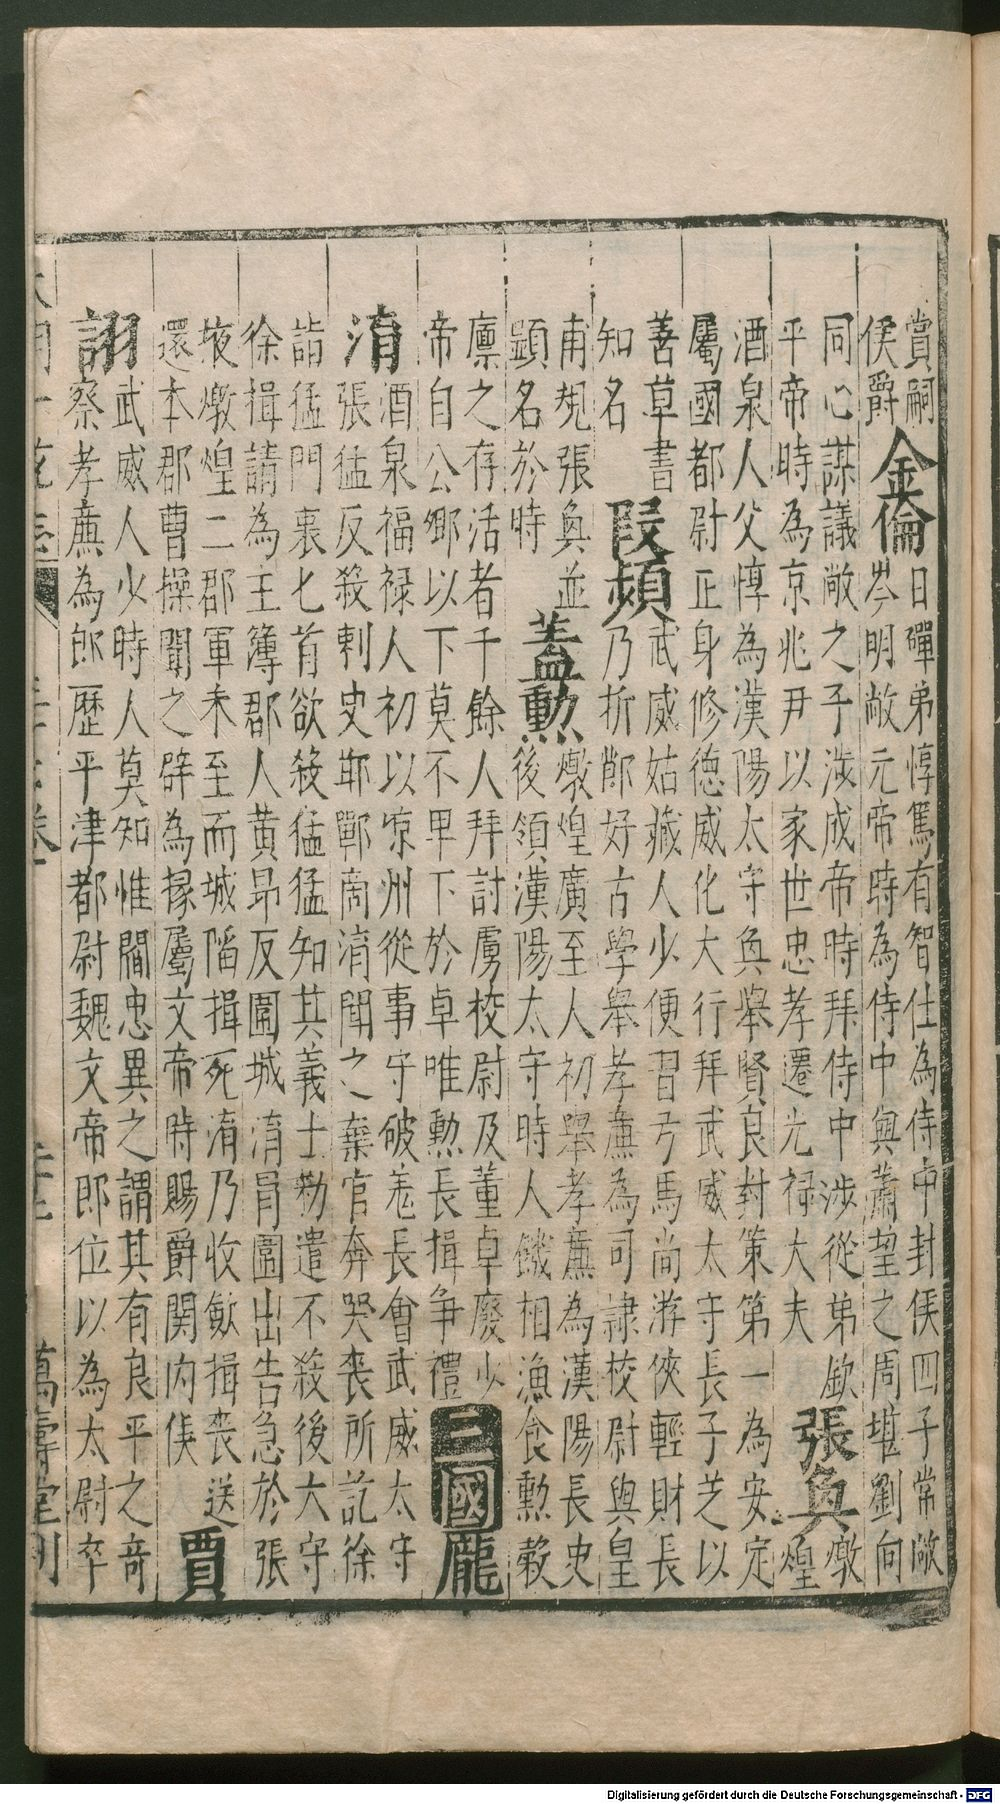 賞嗣
侯爵
金倫
日磾弟惇篤有智仕為侍中封侯四子常敞
岑明敞元帝時為侍中與蕭望之周堪劉向
同心謀議敞之子渉成帝時拜侍中渉從弟欽
平帝時為京兆尹以家世忠孝遷光祿大夫
張奐
燉煌
酒泉人父惇為漢陽太守奐舉賢良對策第一為安定
屬國都尉正身修德威化大行拜武威太守長子芝以
善草書
知名
段熲
武威姑臧人少便習弓馬尚游俠輕財長
乃折節好古學舉孝廉為司隷校尉與皇
甫規張奐並
顯名於時
蓋勲
燉煌廣至人初舉孝廉為漢陽長史
後領漢陽太守時人饑相漁食勲榖
廪之存活者千餘人拜討虜校尉及董卓廢少
帝自公卿以下莫不卑下於卓唯勲長揖争禮
三國
龐
淯
酒泉福禄人初以凉州從事守破羌長會武威太守
張猛反殺刺史邯鄲商淯聞之棄官奔哭喪所訖徐
詣猛門裏匕首欲殺猛猛知其義士勑遣不殺後大守
徐揖請為主簿郡人黄昂反圍城淯捐圍出告急於張
掖燉煌二郡軍未至而城陷揖死淯乃收斂揖喪送
還本郡曹操聞之辟為掾屬文帝時賜爵関内侯
賈
詡
武威人少時人莫知惟閻忠異之謂其有良平之奇
察孝廉為郎歴平津都尉魏文帝即位以為太尉卒
萬壽堂刊
Digitalisierung gefördert durch die Deutsche Forschungsgemeinschaft - DFG